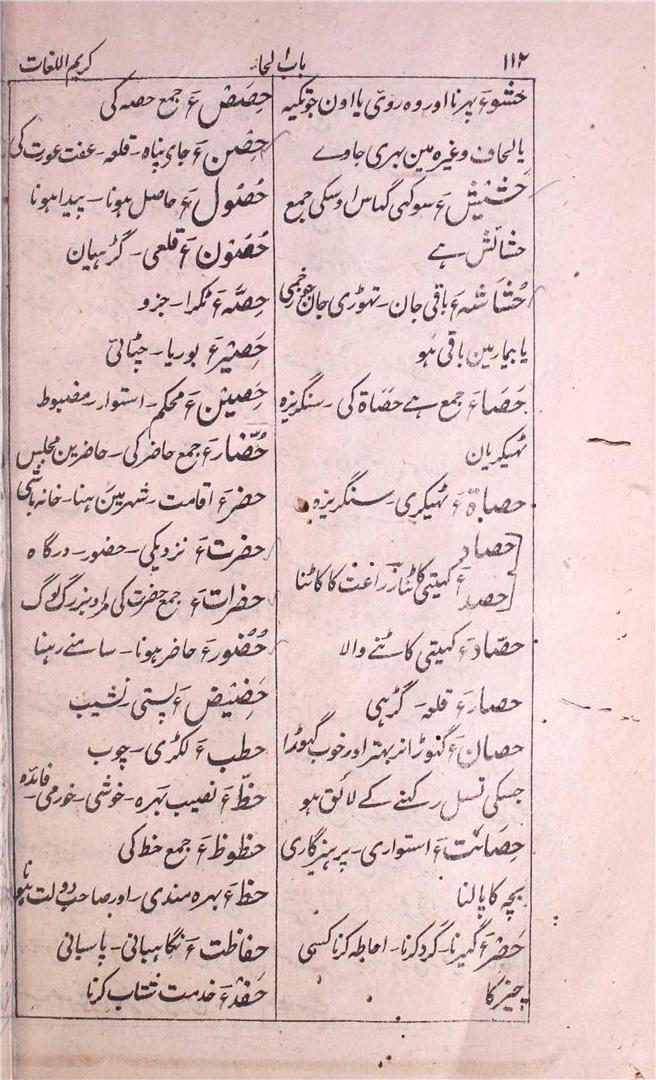 ۱۱۲
باب الحاء
کریم اللغات
حَشْو ءَ بہرنا اور وہ روئی یا اون جو تکیہ
یا لحاف وغیرہ مین بہری جاوے
حَشِیْش ءَ سوکہی گہاس اوسکی جمع
حشائش ہے
حُشَاشَہ ءَ باقی جان۔ تہوڑی جان جو زخمی
یا بیمار مین باقی ہو
حَصَا ءَ جمع ہے حَصَاۃ کی۔ سنگریزہ
ٹہیکریان
حصاۃ ءَ ٹہیکری۔ سنگریزہ
حصاد
حصد ءَ کہیتی کاٹنا زراعت کا کاٹنا
حصّاد ءَ کہیتی کاٹنے والا
حصار ءَ قلعہ۔ گڑہی
حصان ءَ گہوڑا نر بہتر اور خوب گہوڑا
جسکی نسل رکہنے کے لائق ہو
حِصَانَت ءَ استواری۔ پرہیزگاری
بچہ کا پالنا
حَصْر ءَ گہیرنا۔ گرد کرنا۔ احاطہ کرنا کسی
چیز کا
حِصَص ءَ جمع حصہ کی
حِصْن ءَ جای پناہ۔ قلعہ۔ عفت عورت کی
حُصُول ءَ حاصل ہونا۔ پیدا ہونا
حُصُون ءَ قلعی۔ گڑہیان
حِصَّہ ءَ ٹکرا۔ جزو
حَصِیْر ءَ بوریا۔ چٹائی
حَصِیْن ءَ محکم۔ استوار۔ مضبوط
حُضّار ءَ جمع حاضر کی۔ حاضرین مجلس
حضر ءَ اقامت۔ شہر مین رہنا۔ خانہ باشی
حضرت ءَ نزدیکی۔ حضور۔ درگاہ
حضرات ءَ جمع حضرت کی مراد بزرگ لوگ
حُضُور ءَ حاضر ہونا۔ سامنے رہنا
حَضِیْض ءَ پستی نشیب
حطب ءَ لکڑی۔ چوب
حظّ ءَ نصیب بہرہ۔ خوشی۔ خورمی۔ فائدہ
حظوظ ءَ جمع حظ کی
حظ ءَ بہرہ مندی۔ اور صاحب دولت ہونا
حفاظت ءَ نگاہبانی۔ پاسبانی
حَفْد ءَ خدمت شتاب کرنا